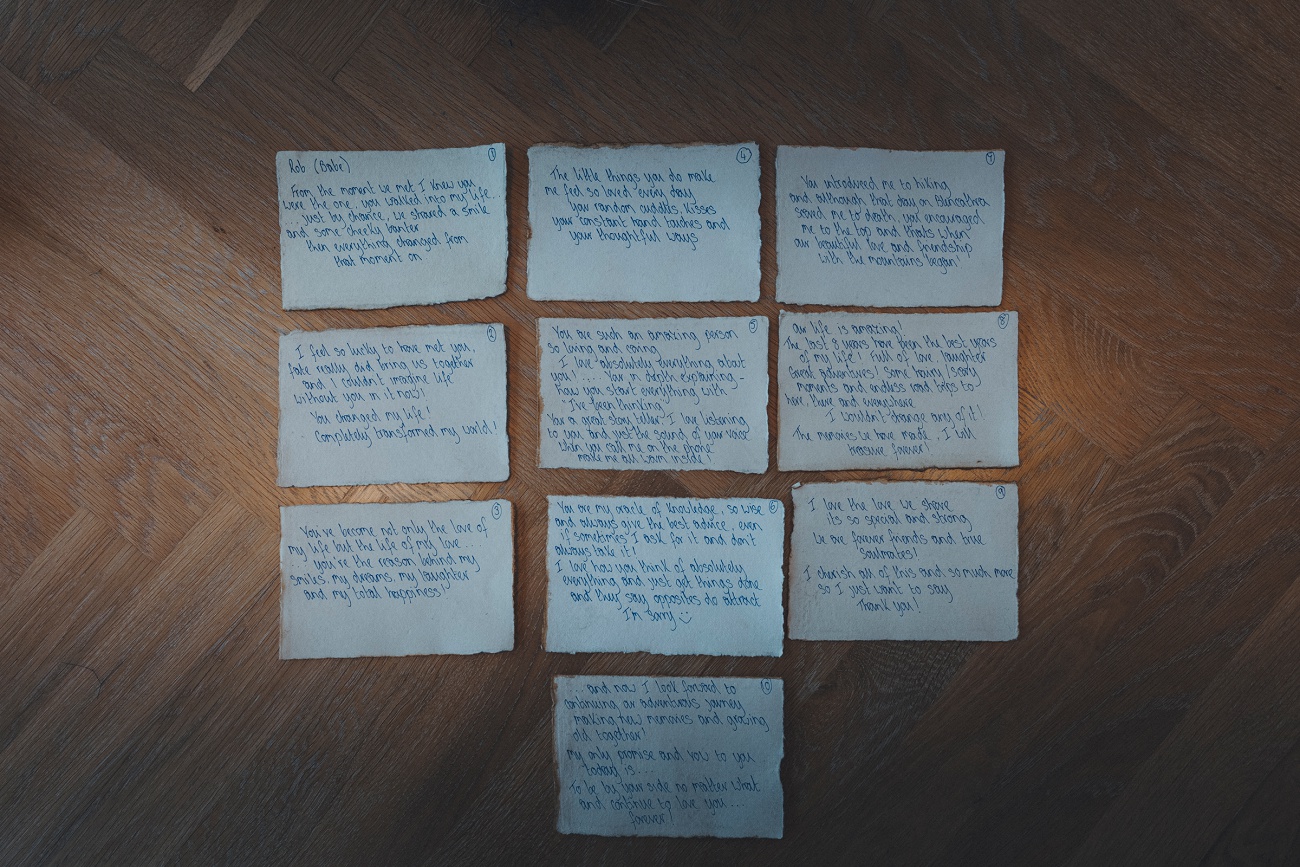 ①
Rob (Babe)
From the moment we met I knew you
were the one, you walked into my life..
... just by chance, we shared a smile
and some cheeky banter
then everything changed from
that moment on
②
I feel so lucky to have met you.
fate really did bring us together
and I couldn't imagine life
without you in it now!
You changed my life!
Completely transformed my world!
③
You've become not only the love of
my life but the life of my love...
you're the reason behind my
smiles, my dreams, my laughter
and my total happiness!
④
The little things you do make
me feel so loved every day
your random cuddles, kisses
your constant hand touches and
your thoughtful ways
⑤
You are such an amazing person
so loving and caring
I love absolutely everything about
you! .... Your in depth explaining -
how you start everything with
"I've been thinking"
Your a great story teller I love listening
to you and just the sound of your voice
when you call me on the phone
make me all warm inside!
⑥
You are my oracle of knowledge, so wise
and always give the best advice, even
if sometimes I ask for it and don't
always take it!
I love how you think of absolutely
everything and just get things done
and they say opposites do attract
I'm sorry :)
7
You introduced me to hiking
and although that day on Blencathra
scared me to death, you encouraged
me to the top and thats when
our beautiful love and friendship
with the mountains began!
⑧
Our life is amazing!
The last 8 years have been the best years
of my life! Full of love, laughter
Great adventures! some hairy/scary
moments and endless road trips to
here, there and everywhere
I wouldn't change any of it!
The memories we have made, I will
treasure forever!
⑨
I love the love we share
its so special and strong
We are forever friends and true
Soulmates!
I cherish all of this and so much more
so I just want to say
Thank you!
⑩
... and now I look forward to
continuing our adventurous journey
making new memories and growing
old together!
My only promise and vow to you
today is...
To be by your side no matter what
and continue to love you ...
forever!